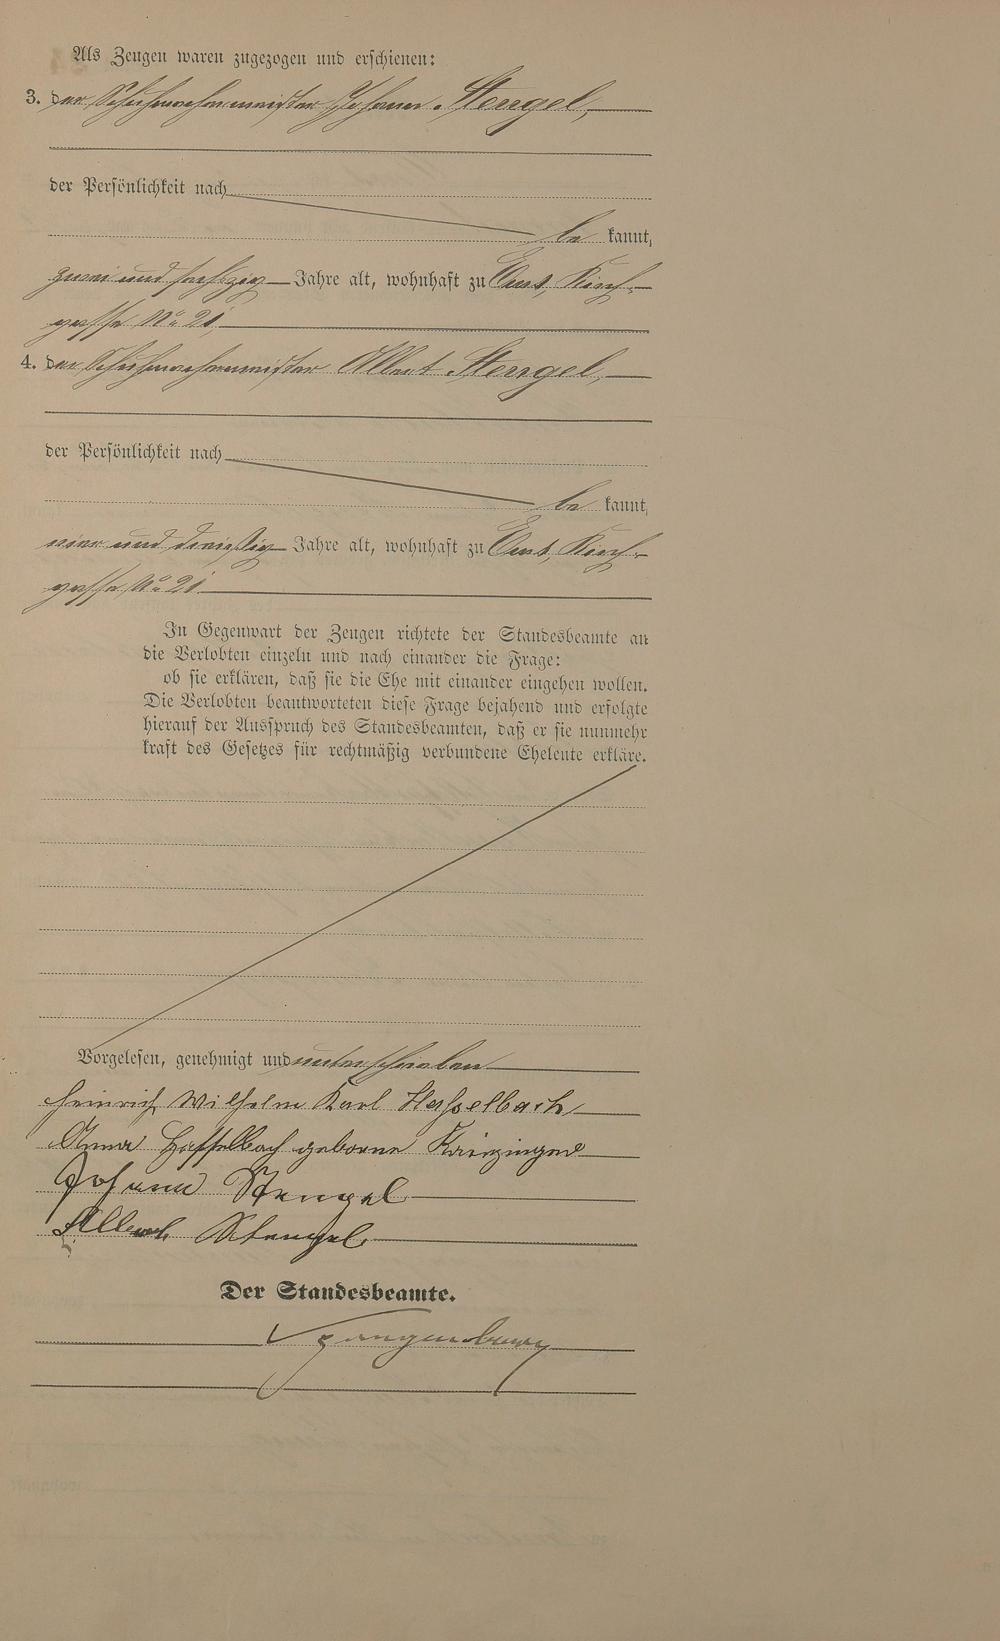 Als Zeugen waren zugezogen und erschienen:
3. der Schuhmachermeister Johann Stengel,
der Persönlichkeit nach
be kannt,
zwei und sechszig Jahre alt, wohnhaft zu Ems, Kirch-
gasse No 21,
4. der Schuhmachermeister Albert Stengel,
der Persönlichkeit nach
be kannt,
vier und dreißig Jahre alt, wohnhaft zu Ems, Kirch-
gasse, No 21
In Gegenwart der Zeugen richtete der Standesbeamte an
die Verlobten einzeln und nach einander die Frage:
ob sie erklären, daß sie die Ehe mit einander eingehen wollen.
Die Verlobten beantworteten diese Frage bejahend und erfolgte
hierauf der Ausspruch des Standesbeamten, daß er sie nunmehr
kraft des Gesetzes für rechtmäßig verbundene Eheleute erkläre.
Vorgelesen, genehmigt und unterschrieben
Heinrich Wilhelm Karl Hasselbach
Anna Hasselbach geborne
Johann Stengel
Albert Stengel
Der Standesbeamte.
Spangenberg